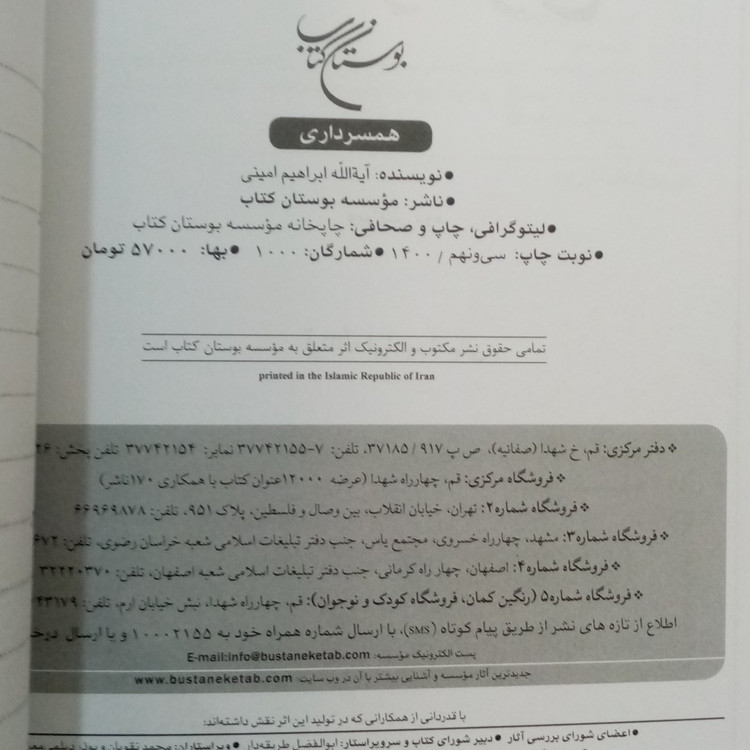 بوستان کتاب
همسرداری
● نویسنده: آیةاللّه ابراهیم امینی
● ناشر: مؤسسه بوستان کتاب
● لیتوگرافی، چاپ و صحافی: چاپخانه مؤسسه بوستان کتاب
● نوبت چاپ: سی‌ونهم / ۱۴۰۰ ● شمارگان: ۱۰۰۰ ● بها: ۵۷۰۰۰ تومان
تمامی حقوق نشر مکتوب و الکترونیک اثر متعلق به مؤسسه بوستان کتاب است
printed in the Islamic Republic of Iran
❖ دفتر مرکزی: قم، خ شهدا (صفائیه)، ص پ ۹۱۷ / ۳۷۱۸۵، تلفن: ۷-۳۷۷۴۲۱۵۵ نمابر: ۳۷۷۴۲۱۵۴ تلفن پخش:
❖ فروشگاه مرکزی: قم، چهارراه شهدا (عرضه ۱۲۰۰۰عنوان کتاب با همکاری ۱۷۰ناشر)
❖ فروشگاه شماره۲: تهران، خیابان انقلاب، بین وصال و فلسطین، پلاک ۹۵۱، تلفن: ۶۶۹۶۹۸۷۸
❖ فروشگاه شماره۳: مشهد، چهارراه خسروی، مجتمع یاس، جنب دفتر تبلیغات اسلامی شعبه خراسان رضوی، تلفن:
❖ فروشگاه شماره۴: اصفهان، چهار راه کرمانی، جنب دفتر تبلیغات اسلامی شعبه اصفهان، تلفن: ۳۲۲۲۰۳۷۰
❖ فروشگاه شماره۵ (رنگین کمان، فروشگاه کودک و نوجوان): قم، چهارراه شهدا، نبش خیابان ارم، تلفن:
اطلاع از تازه های نشر از طریق پیام کوتاه (SMS)، با ارسال شماره همراه خود به ۱۰۰۰۲۱۵۵ و یا ارسال
پست الکترونیک مؤسسه: E-mail:info@bustaneketab.com
جدیدترین آثار مؤسسه و آشنایی بیشتر با آن در وب سایت: www.bustaneketab.com
با قدردانی از همکارانی که در تولید این اثر نقش داشته‌اند:
● اعضای شورای بررسی آثار ● دبیر شورای کتاب و سرویراستار: ابوالفضل طریقه‌دار ● ویراستاران: محمد